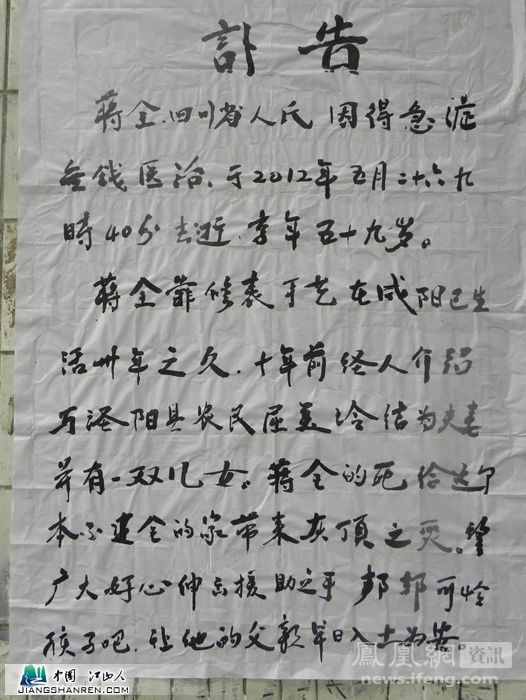 訃告
蒋全、四川省人氏 因得急症
無钱医治、于2012年五月二十六九
時40分去逝.享年五十九岁。
蒋全靠修表手艺在咸阳已生
活卅年之久、十年前经人介绍
与泾阳县农民屈美冷结为夫妻
并有一双儿女。蒋全的死给这个
本不健全的家带来灰顶之灾。望
广大好心伸出援助之手 帮帮可怜
孩子吧、让他的父亲早日入土为安。
鳳凰網 資訊
news.ifeng.com
中国 江山人
JIANGSHANREN.COM